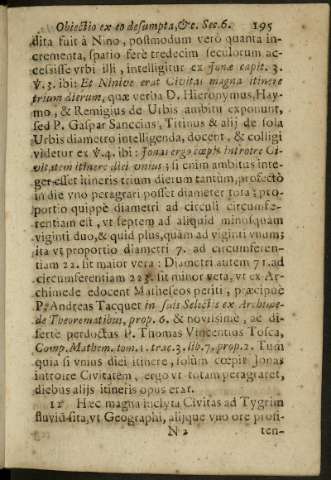 Obiectio ex eo desumpta, &c. Sec. 6. 195
dita fuit à Nino, postmodum verò quanta in-
crementa, spatio ferè tredecim seculorum ac-
cessisse vrbi illi, intelligitur ex Jonæ capit. 3.
℣. 3. ibi: Et Ninive erat Civitas magna itinere
trium dierum, quæ verba D. Hieronymus, Hay-
mo, & Remigius de Urbis ambitu exponunt,
sed P. Gaspar Sanctius, Titinus & alij de sola
Urbis diametro intelligenda, docent, & colligi
videtur ex ℣. 4. ibi: Jonas ergo cœpit introire Ci-
vitatem itinere diei vnius; si enim ambitus inte-
ger esset itineris trium dierum tantùm, profectò
in die vno peragrari posset diameter tota; pro-
portio quippè diametri ad circuli circumfe-
rentiam est, vt septem ad aliquid minusquam
viginti duo, & quid plus, quàm ad viginti vnum;
ita vt proportio diametri 7. ad circumferen-
tiam 22. sit maior vera: Diametri autem 71. ad
circumferentiam 223. sit minor vera, vt ex Ar-
chimede edocent Matheseos periti, præcipuè
P. Andreas Tacquet in suis Selectis ex Archime-
de Theorematibus, prop. 6. & novissimè, ac di-
sertè perdoctus P. Thomas Vincentius Tosca,
Comp. Mathem. tom. 1. trac. 3. lib. 7. prop. 2. Tum
quia si vnius diei itinere, solùm cœpit Jonas
introire Civitatem, ergo vt totam peragraret,
diebus alijs itineris opus erat.
12 Hæc magna inclyta Civitas ad Tygrim
fluviũ sita, vt Geographi, alijque vno ore profi-
N 2 ten-